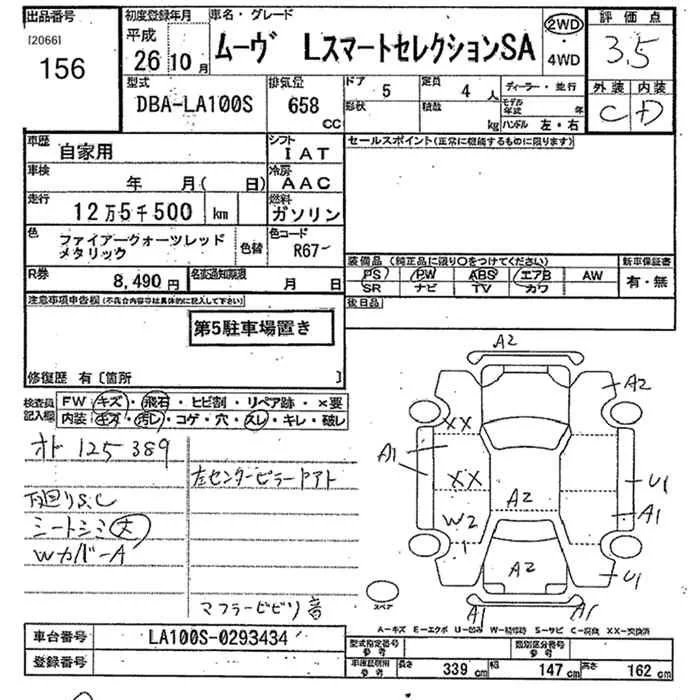 出品番号
[2066]
156
初度登録年月
平成
26年10月
車名・グレード
ムーヴ LスマートセレクションSA
2WD
・
4WD
評価点
3.5
外装 内装
C D
型式
DBA-LA100S
排気量
658
CC
ドア 5
形状
定員 4 人
積載 kg
ディーラー・並行
モデル年式 年
ハンドル 左・右
車歴
自家用
シフト
IAT
セールスポイント(正常に機能するものに限ります)
車検
年 月( 日)
冷房
AAC
走行
12万5千500 km
燃料
ガソリン
色
ファイアークォーツレッド
メタリック
色替
色コード
R67-
装備品 (純正品に限り○をつけてください)
新車保証書
PS PW ABS エアB AW
SR ナビ TV カワ
有・無
R券
8,490円
名変通知期限
月 日
後日品
注意事項申告欄(不具合内容等は具体的に記入して下さい)
第5駐車場置き
修復歴 有〔箇所 〕
検査員
記入欄
FW キズ・飛石・ヒビ割・リペア跡・×要
内装 キズ・汚レ・コゲ・穴・スレ・キレ・破レ
オド 125389
左センターピラードアト
下廻りS.C
シートシミ大
Wカバ-A
マフラービビリ音
A2
A2
XX
A1
XX
A2
U1
W2
A1
1
A2
U1
スペア
A1
A1
A-キズ E-エクボ U-凹み W-補修跡 S-サビ C-腐食 XX-交換済
車台番号
LA100S-0293434
登録番号
型式指定番号
参考
類別区分番号
参考
車庫証明用
参考
長さ 339 cm 幅 147 cm 高さ 162 cm